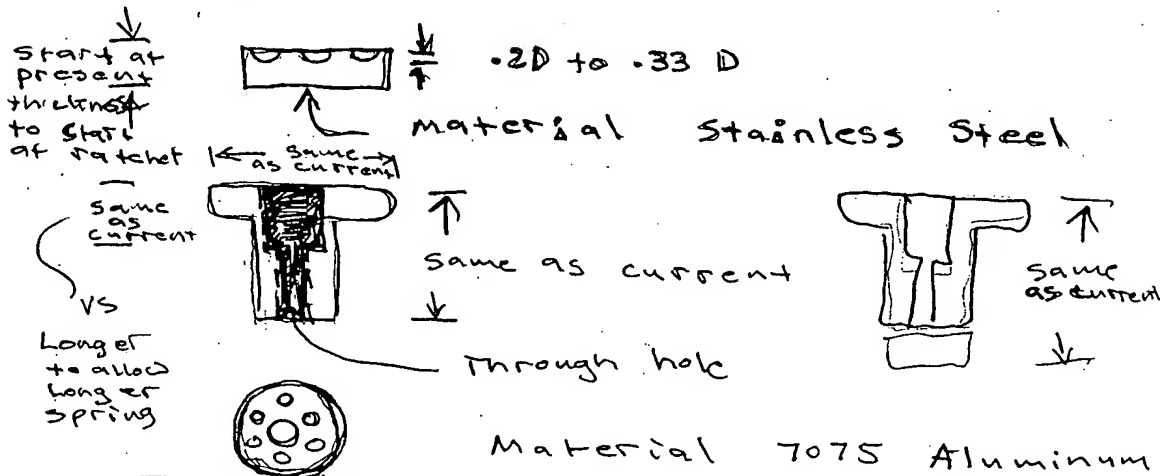 Start at
present
thickness
to start
at ratchet
.2D to .33 D
Material Stainless Steel
same
as current
same
as
current
VS
Longer
to allow
longer
spring
same as current
same
as current
Through hole
Material 7075 Aluminum